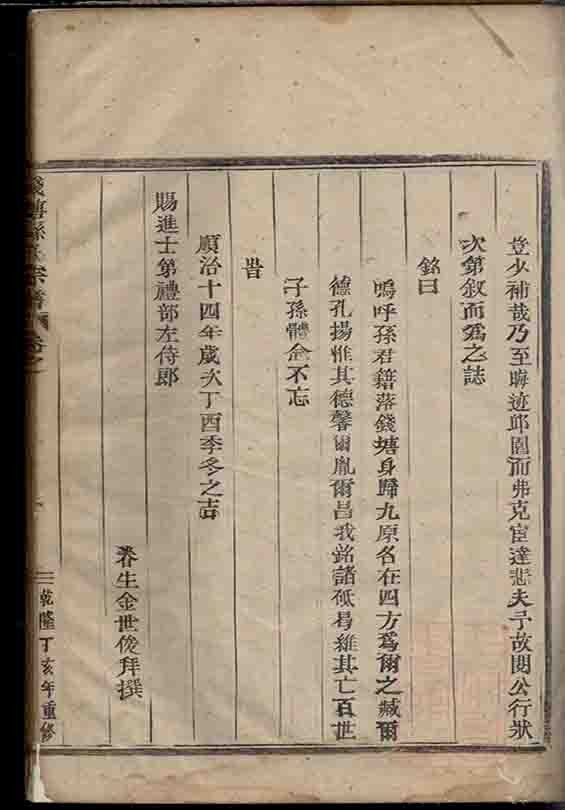 豈少補哉乃至晦迹邱園而弗克宦達悲夫予故閱公行狀
次第敘而爲之誌
銘曰
嗚呼孫君籍落錢塘身歸九原名在四方爲爾之藏爾
德孔揚惟其德馨爾胤爾昌我銘諸砥曷維其亡百世
子孫體企不忘
旹
順治十四年歲次丁酉季冬之吉
賜進士第禮部左侍郎
眷生金世俊拜撰
孫氏宗譜 卷之一
乾隆丁亥年重修